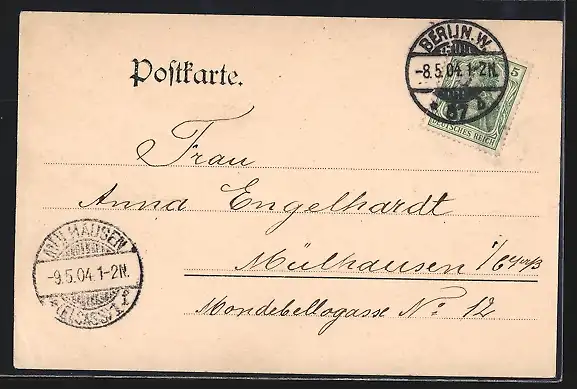 Postkarte.
BERLIN. W.
-8.5.04. 1-2N.
* 57 d.
5
DEUTSCHES REICH
Frau
Anna Engelhardt
Mülhausen i/
Mondebellogasse No. 12
MÜLHAUSEN
-9.5.04. 1-2N.
(ELSASS) 1